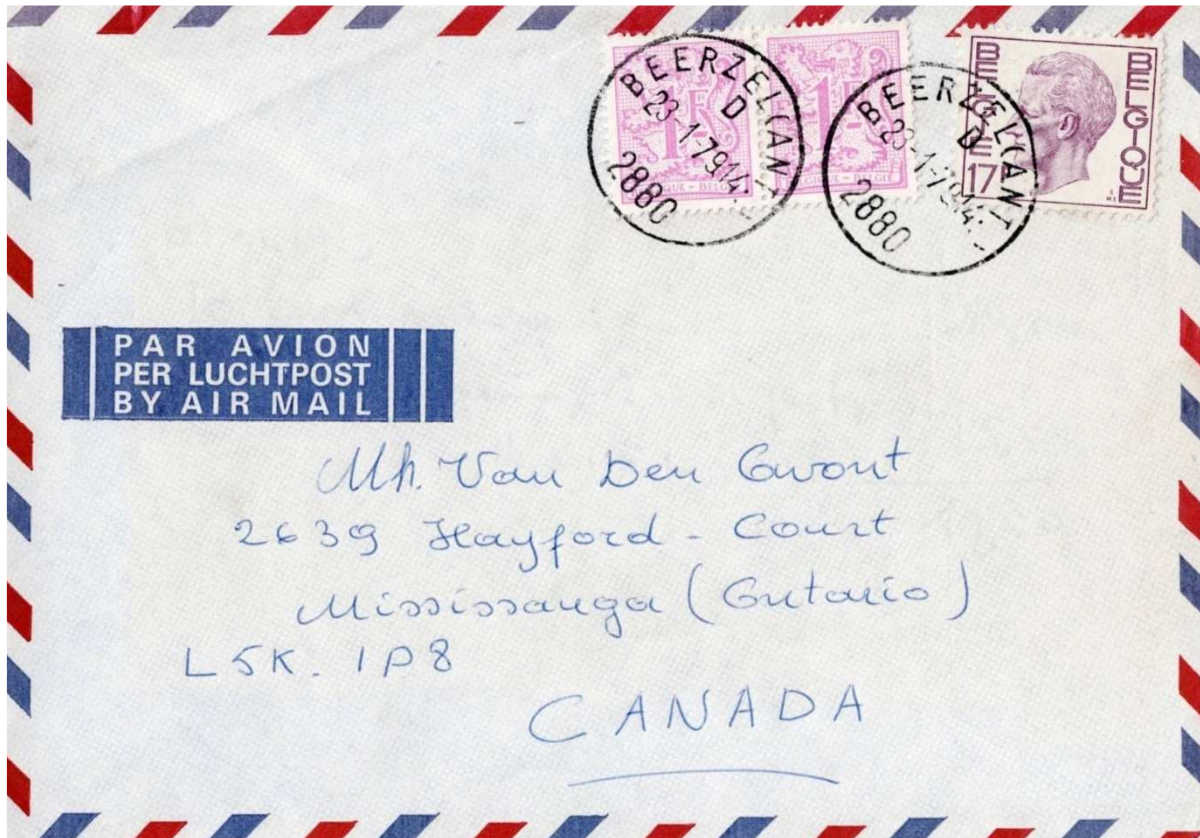 BEERZEL (ANT
D
23-1-79 14
2880
1F
BELGIQUE - BELGIË
BEERZEL (ANT
D
23-1-79 14
2880
1F
BELGIQUE - BELGIË
BELGIE BELGIQUE
17F
PAR AVION
PER LUCHTPOST
BY AIR MAIL
Mh. Van Den Gvont
2639 Hayford - Court
Mississauga (Ontario)
L5K. 1P8
CANADA